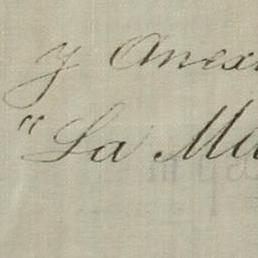 y Anex
"La Ma